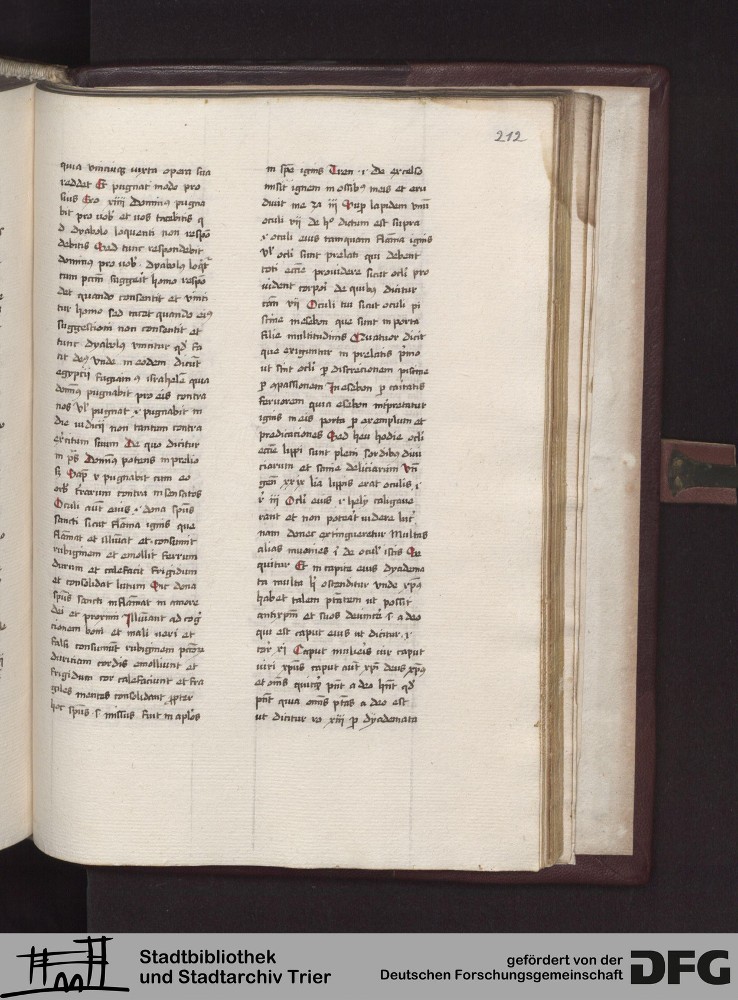 212
quia unicuique iuxta opera sua
reddet Et pugnat modo pro
suis Exo xiiii Dominus pugna
bit pro vob et vos tacebitis q
d dyabolo loquenti non respon
debitis Sed tunc respondebit
dominus pro vob. dyabolus loqr
tum pctm suggerit homo respo
det quando consentit et vinci
tur homo sed tacet quando eius
suggestioni non consentit et
tunc dyabolus vincitur qd fa
cit deus unde in eodem dicunt
egyptii fugiamus israhelem quia
dominus pugnabit pro eis contra
nos vl pugnat i pugnabit in
die iudicii non tantum contra
exercitum suum De quo dicitur
in ps Dominus potens in prelio
Sap v pugnabit cum eo
orbis terrarum contra insensatos
Oculi aut eius i dona spus
sancti sicut flama ignis que
flamat et illuminat et consumit
rubiginem et emollit ferrum
durum et calefacit frigidum
et consolidat lutum Sic dona
spus sancti inflamat in amore
dei et proximi Illuminant ad cog
nicionem boni et mali veri et
falsi consumunt rubiginem
duriciem cordis emolliunt et
frigidum cor calefaciunt et fra
giles mentes consolidant propter
hoc spus s missus fuit in aplos
in spe ignis Tren i De excelso
misit ignem in ossibus meis et eru
divit me za iii Sup lapidem unum
oculi vii de hoc dictum est supra
i oculi eius tamquam flama ignis
Vl ocli sunt prelati qui debent
toti eccie providere sicut ocli pro
vident corpori de quibus dicitur
can vii Oculi tui sicut oculi pi
scine in esebon que sunt in porta
filie multitudinis Quatuor dicit
que exiguntur in prelatis primo
ut sint ocli p discrecionem piscine
p compassionem In esebon p caritatis
fervorem quia esebon interpretatur
ignis meis porta p exemplum et
predicationes Sed heu hodie ocli
eccie lippi sunt pleni sordibus divi
ciarum et fumo deliciarum Un
gen xxix lia lippis erat oculis i
r iii Ocli eius i hely caligave
rant et non poterat videre lucer
nam donec extingueretur Multas
alias invenies i de oculis istis Se
quitur Et in capite eius dyadema
ta multa hic ostenditur unde xpc
habet talem ptatem ut possit
antixpm et suos devincere s a deo
qui est caput eius ut dicitur i
cor xi Caput mulieris vir caput
viri xpus caput aut xpi deus xpus
et oms quicumque pnt a deo hnt qd
pnt quia omis ptas a deo est
ut dicitur ro xiii p dyademata
Stadtbibliothek
und Stadtarchiv Trier
gefördert von der
Deutschen Forschungsgemeinschaft
DFG